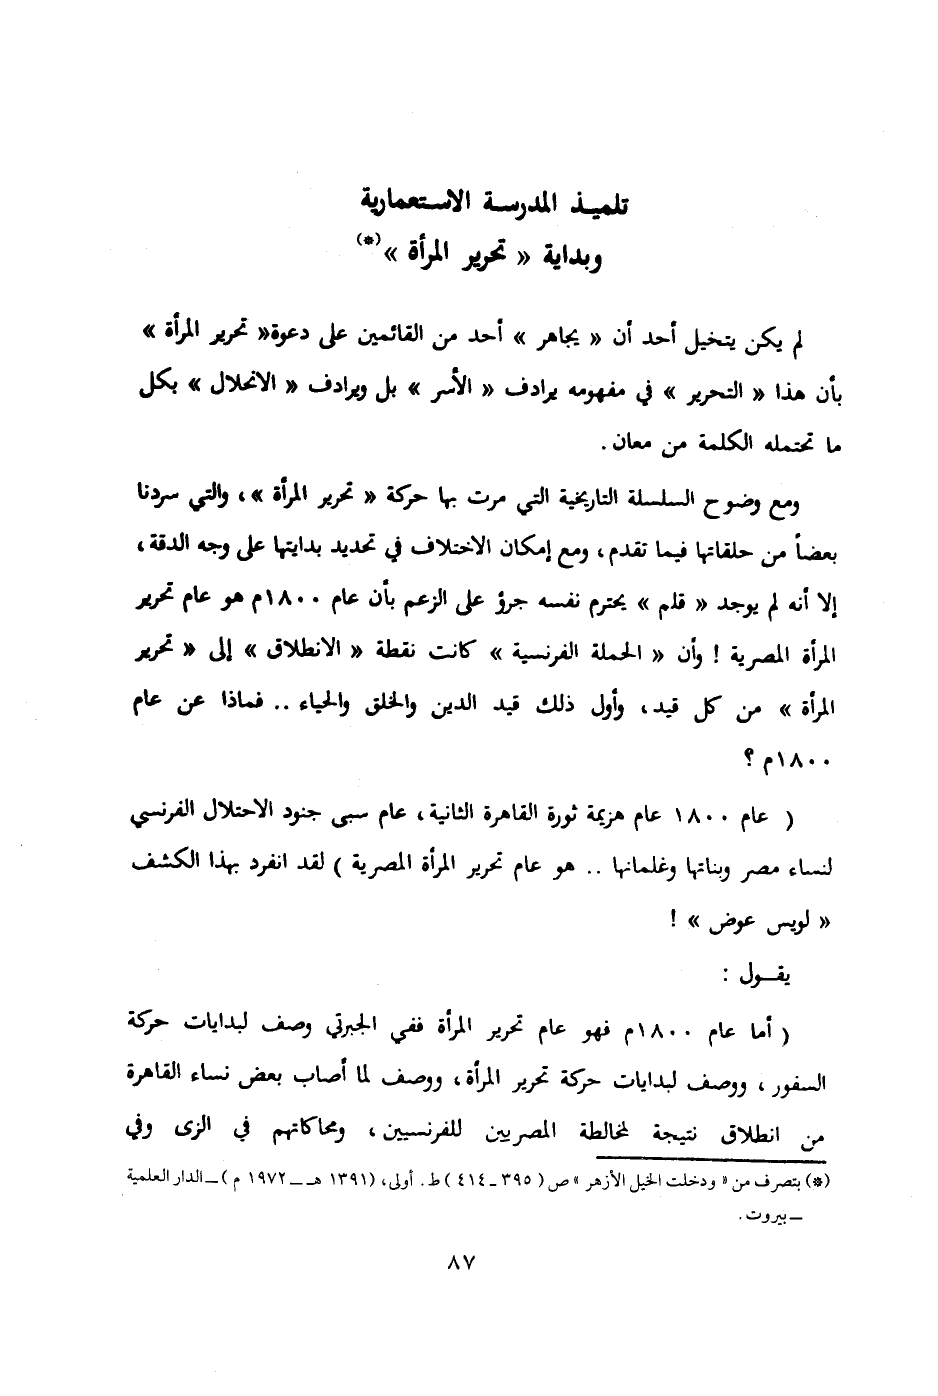 تلميذ المدرسة الاستعمارية
وبداية « تحرير المرأة »(*)
لم يكن يتخيل أحد أن « يجاهر » أحد من القائمين على دعوة« تحرير المرأة »
بأن هذا « التحرير » في مفهومه يرادف « الأسر » بل ويرادف « الانحلال » بكل
ما تحتمله الكلمة من معان .
ومع وضوح السلسلة التاريخية التي مرت بها حركة « تحرير المرأة »، والتي سردنا
بعضاً من حلقاتها فيما تقدم ، ومع إمكان الاختلاف في تحديد بدايتها على وجه الدقة ،
إلا أنه لم يوجد « قلم » يحترم نفسه جرؤ على الزعم بأن عام ١٨٠٠م هو عام تحرير
المرأة المصرية ! وأن « الحملة الفرنسية » كانت نقطة « الانطلاق » إلى « تحرير
المرأة » من كل قيد ، وأول ذلك قيد الدين والخلق والحياء .. فماذا عن عام
١٨٠٠م ؟
( عام ١٨٠٠ عام هزيمة ثورة القاهرة الثانية ، عام سبى جنود الاحتلال الفرنسي
لنساء مصر وبناتها وغلمانها .. هو عام تحرير المرأة المصرية ) لقد انفرد بهذا الكشف
« لويس عوض » !
يقــول :
( أما عام ١٨٠٠م فهو عام تحرير المرأة ففي الجبرتي وصف لبدايات حركة
السفور ، ووصف لبدايات حركة تحرير المرأة ، ووصف لما أصاب بعض نساء القاهرة
من انطلاق نتيجة لمخالطة المصريين للفرنسيين ، ومحاكاتهم في الزى وفي
(*) بتصرف من « ودخلت الخيل الأزهر » ص ( ٣٩٥ ـ ٤١٤ ) ط . أولى، (١٣٩١ هـ ــ ١٩٧٢ م ) ــ الدار العلمية
ــ بيروت .
٨٧